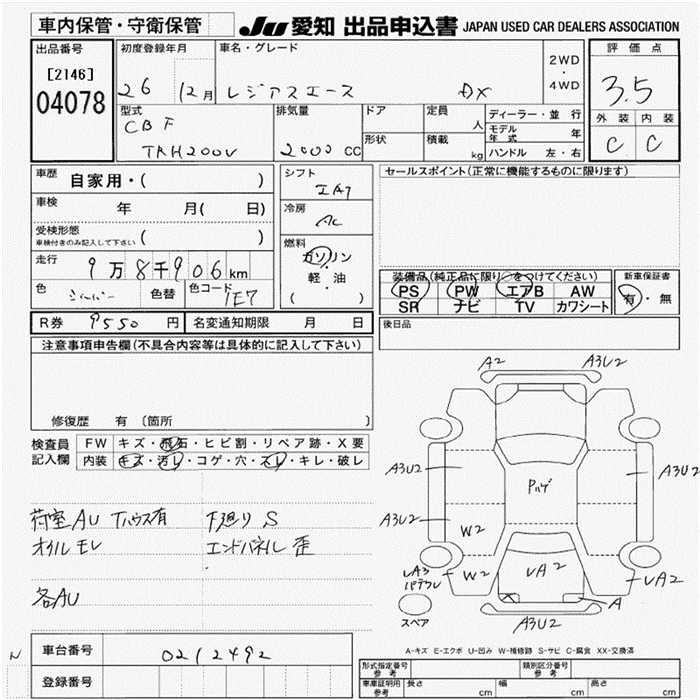 車内保管・守衛保管
JU 愛知 出品申込書 JAPAN USED CAR DEALERS ASSOCIATION
出品番号
[2146]
04078
初度登録年月
26 12月
車名・グレード
レジアスエース DX
2WD
・
4WD
評価点
3.5
外装 内装
C C
型式
CBF
TRH200V
排気量
2000 CC
ドア
形状
定員
人
積載
kg
ディーラー・並行
モデル年式 年
ハンドル 左・右
車歴
自家用・( )
車検 年 月( 日)
受検形態
車検付きのみ記入して下さい ( )
走行 9万8千906km
色 シルバー 色替 色コード 1E7
シフト
IAT
冷房
AC
燃料
ガソリン
・
軽・油
( )
セールスポイント(正常に機能するものに限ります)
装備品(純正品に限り○をつけてください)
PS PW エアB AW
SR ナビ TV カワシート
新車保証書
有・無
後日品
R券 9550 円 名変通知期限 月 日
注意事項申告欄(不具合内容等は具体的に記入して下さい)
修復歴 有 〔箇所 〕
検査員
記入欄
FW キズ・飛石・ヒビ割・リペア跡・X要
内装 キズ・汚レ・コゲ・穴・スレ・キレ・破レ
荷室AU Tハウス有 下廻りS
オイルモレ エンドパネル歪
各AU
A2 A3U2
A3U2 A3U2
Pハゲ
A3U2
W2
W2 UA2 UA2
UA3
A
A3U2
スペア
A-キズ E-エクボ U-凹み W-補修跡 S-サビ C-腐食 XX-交換済
N
車台番号 0212492
登録番号
形式指定番号
参考
類別区分番号
参考
車庫証明用
参考
長さ cm 幅 cm 高さ cm